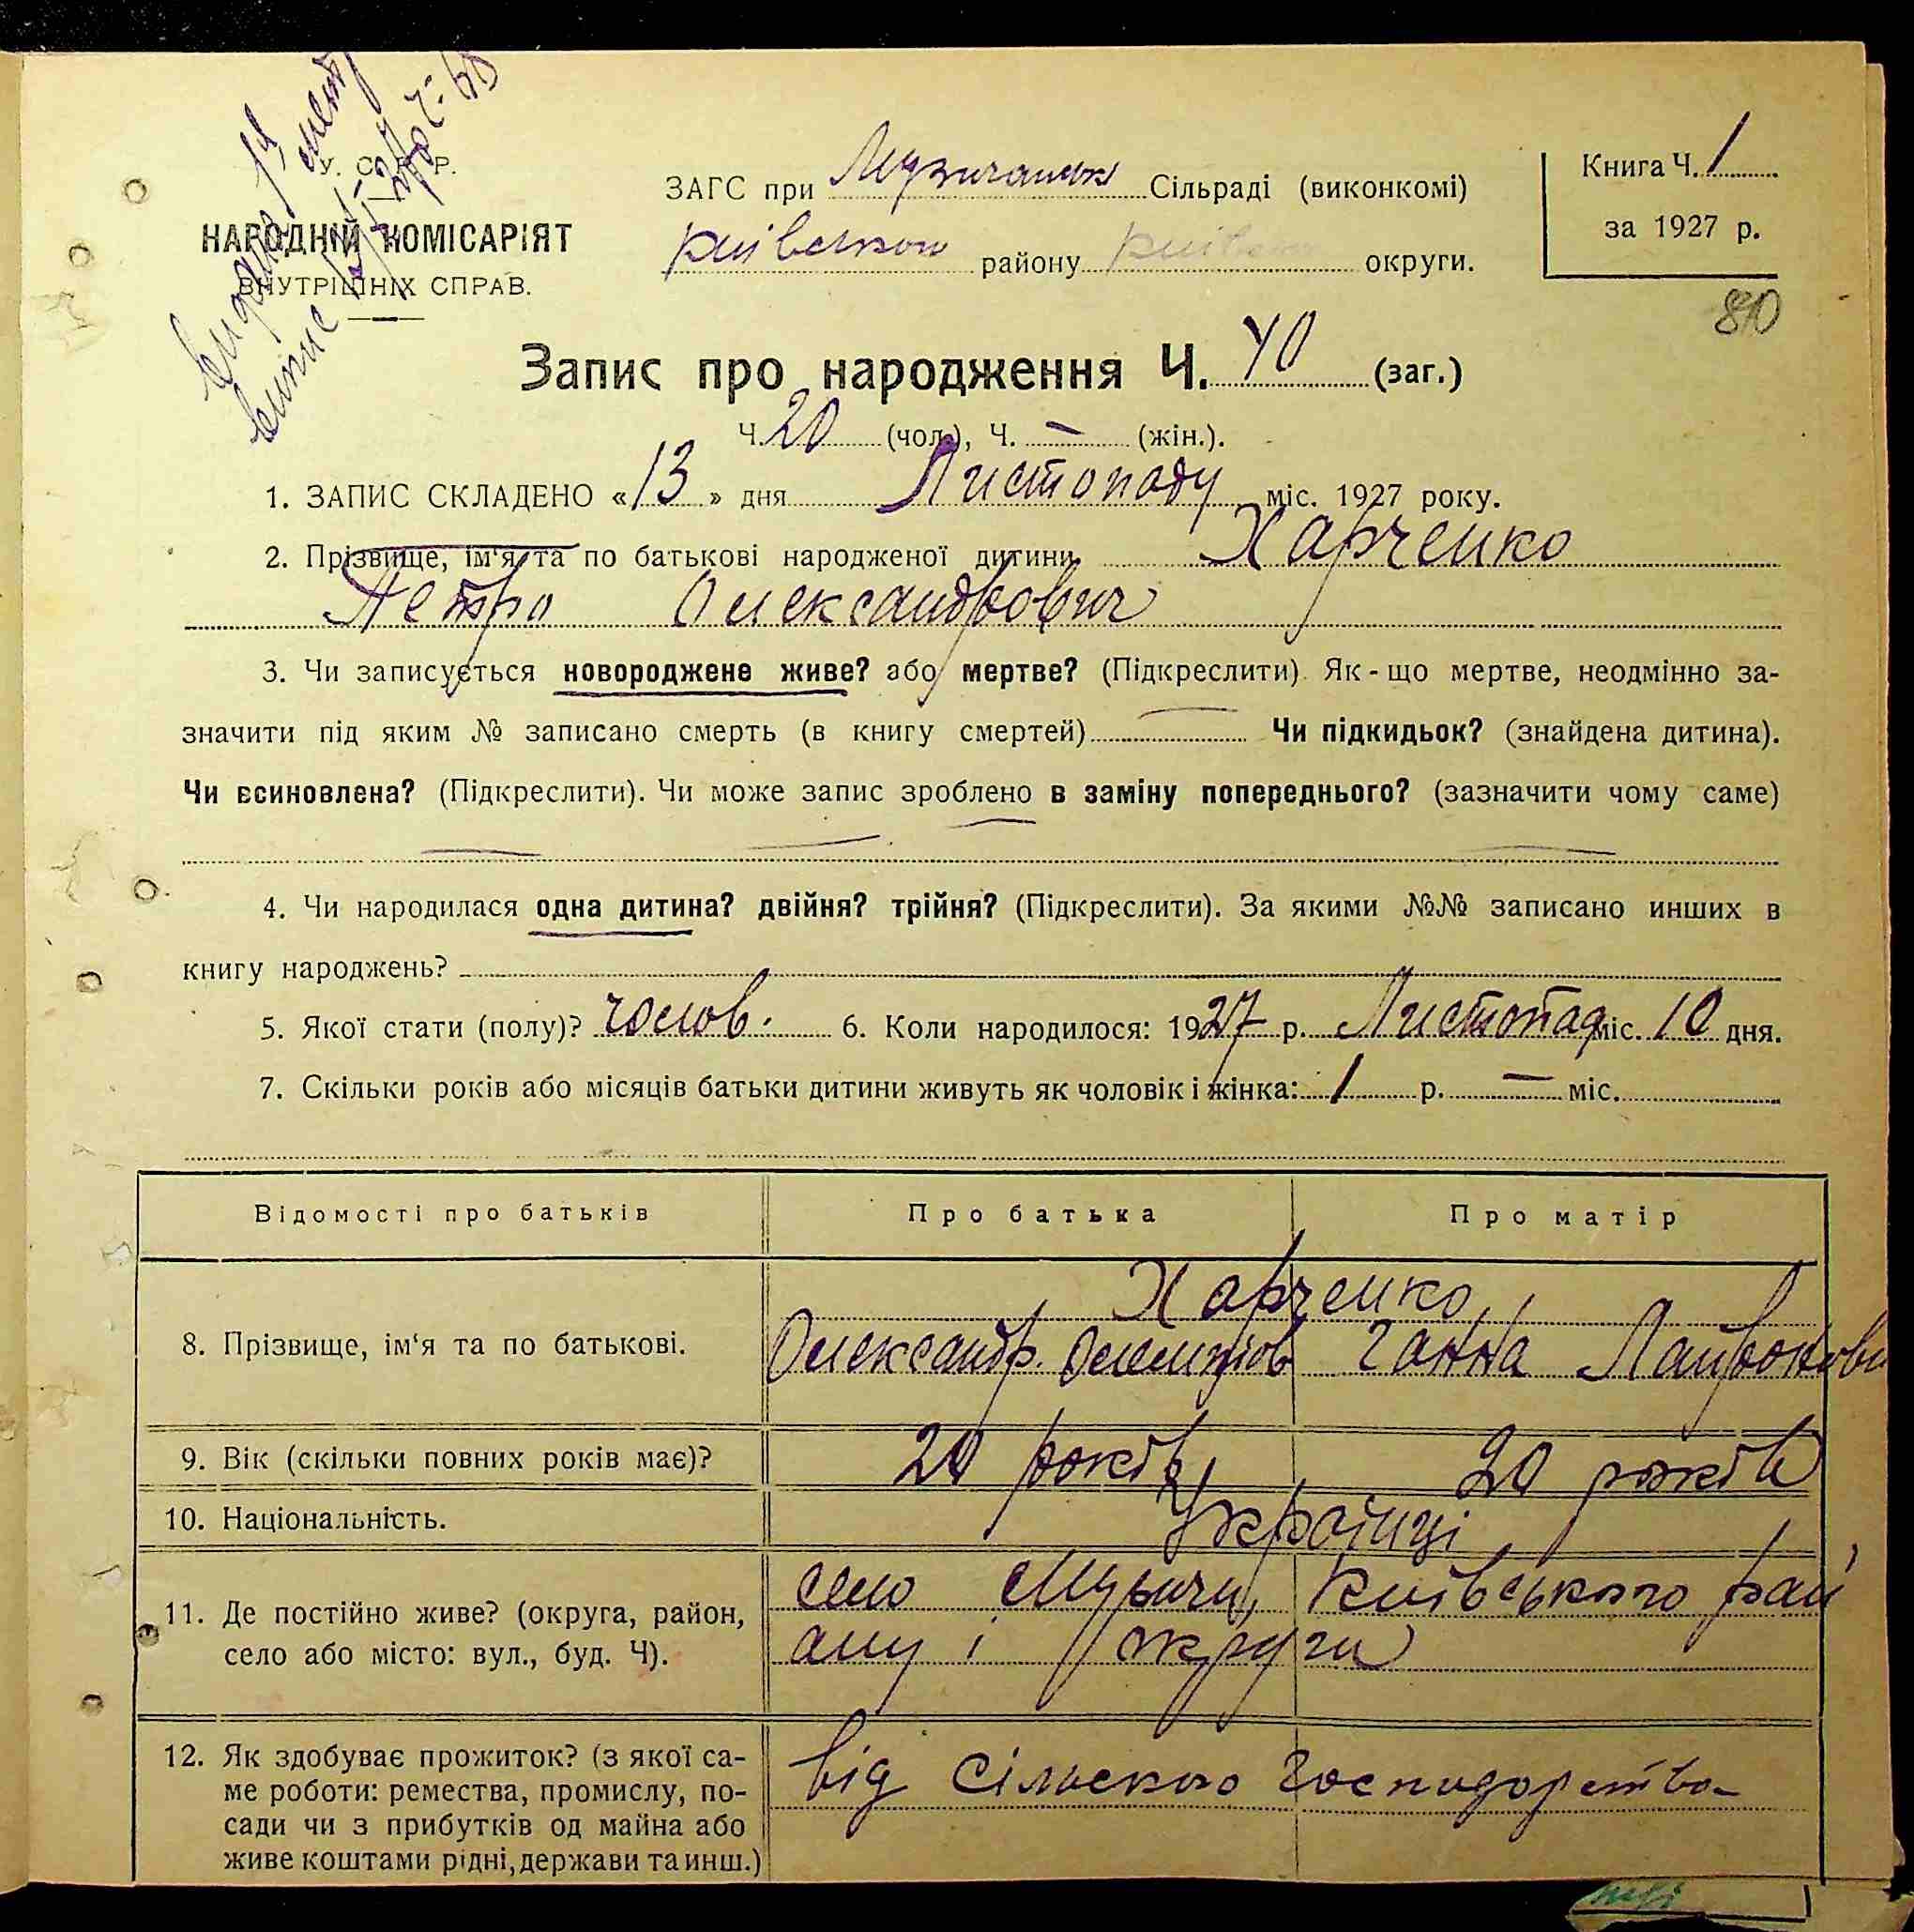 У. С. Р. Р.
НАРОДНІЙ КОМІСАРІЯТ
ВНУТРІШНІХ СПРАВ.
ЗАГС при Музичанськ Сільраді (виконкомі)
Київського району Київської округи.
Книга Ч. 1
за 1927 р.
80
Запис про народження Ч. 40 (заг.)
Ч. 20 (чол.), Ч. — (жін.).
1. ЗАПИС СКЛАДЕНО «13» дня Листопаду міс. 1927 року.
2. Прізвище, ім'я та по батькові народженої дитини Харченко
Петро Олександрович
3. Чи записується новороджене живе? або мертве? (Підкреслити). Як-що мертве, неодмінно за-
значити під яким № записано смерть (в книгу смертей) — Чи підкидьок? (знайдена дитина).
Чи всиновлена? (Підкреслити). Чи може запис зроблено в заміну попереднього? (зазначити чому саме)
4. Чи народилася одна дитина? двійня? трійня? (Підкреслити). За якими №№ записано инших в
книгу народжень?
5. Якої стати (полу)? чолов. 6. Коли народилося: 1927 р. Листопад міс. 10 дня.
7. Скільки років або місяців батьки дитини живуть як чоловік і жінка: 1 р. — міс.
Відомості про батьків Про батька Про матір
8. Прізвище, ім'я та по батькові. Харченко
Олександр Ганна
9. Вік (скільки повних років має)? 20 років 20 років
10. Національність. Українці
11. Де постійно живе? (округа, район,
село або місто: вул., буд. Ч).
село Музичи, Київського рай
ану і округи
12. Як здобуває прожиток? (з якої са-
ме роботи: ремества, промислу, по-
сади чи з прибутків од майна або
живе коштами рідні, держави та инш.)
від сільского господарства